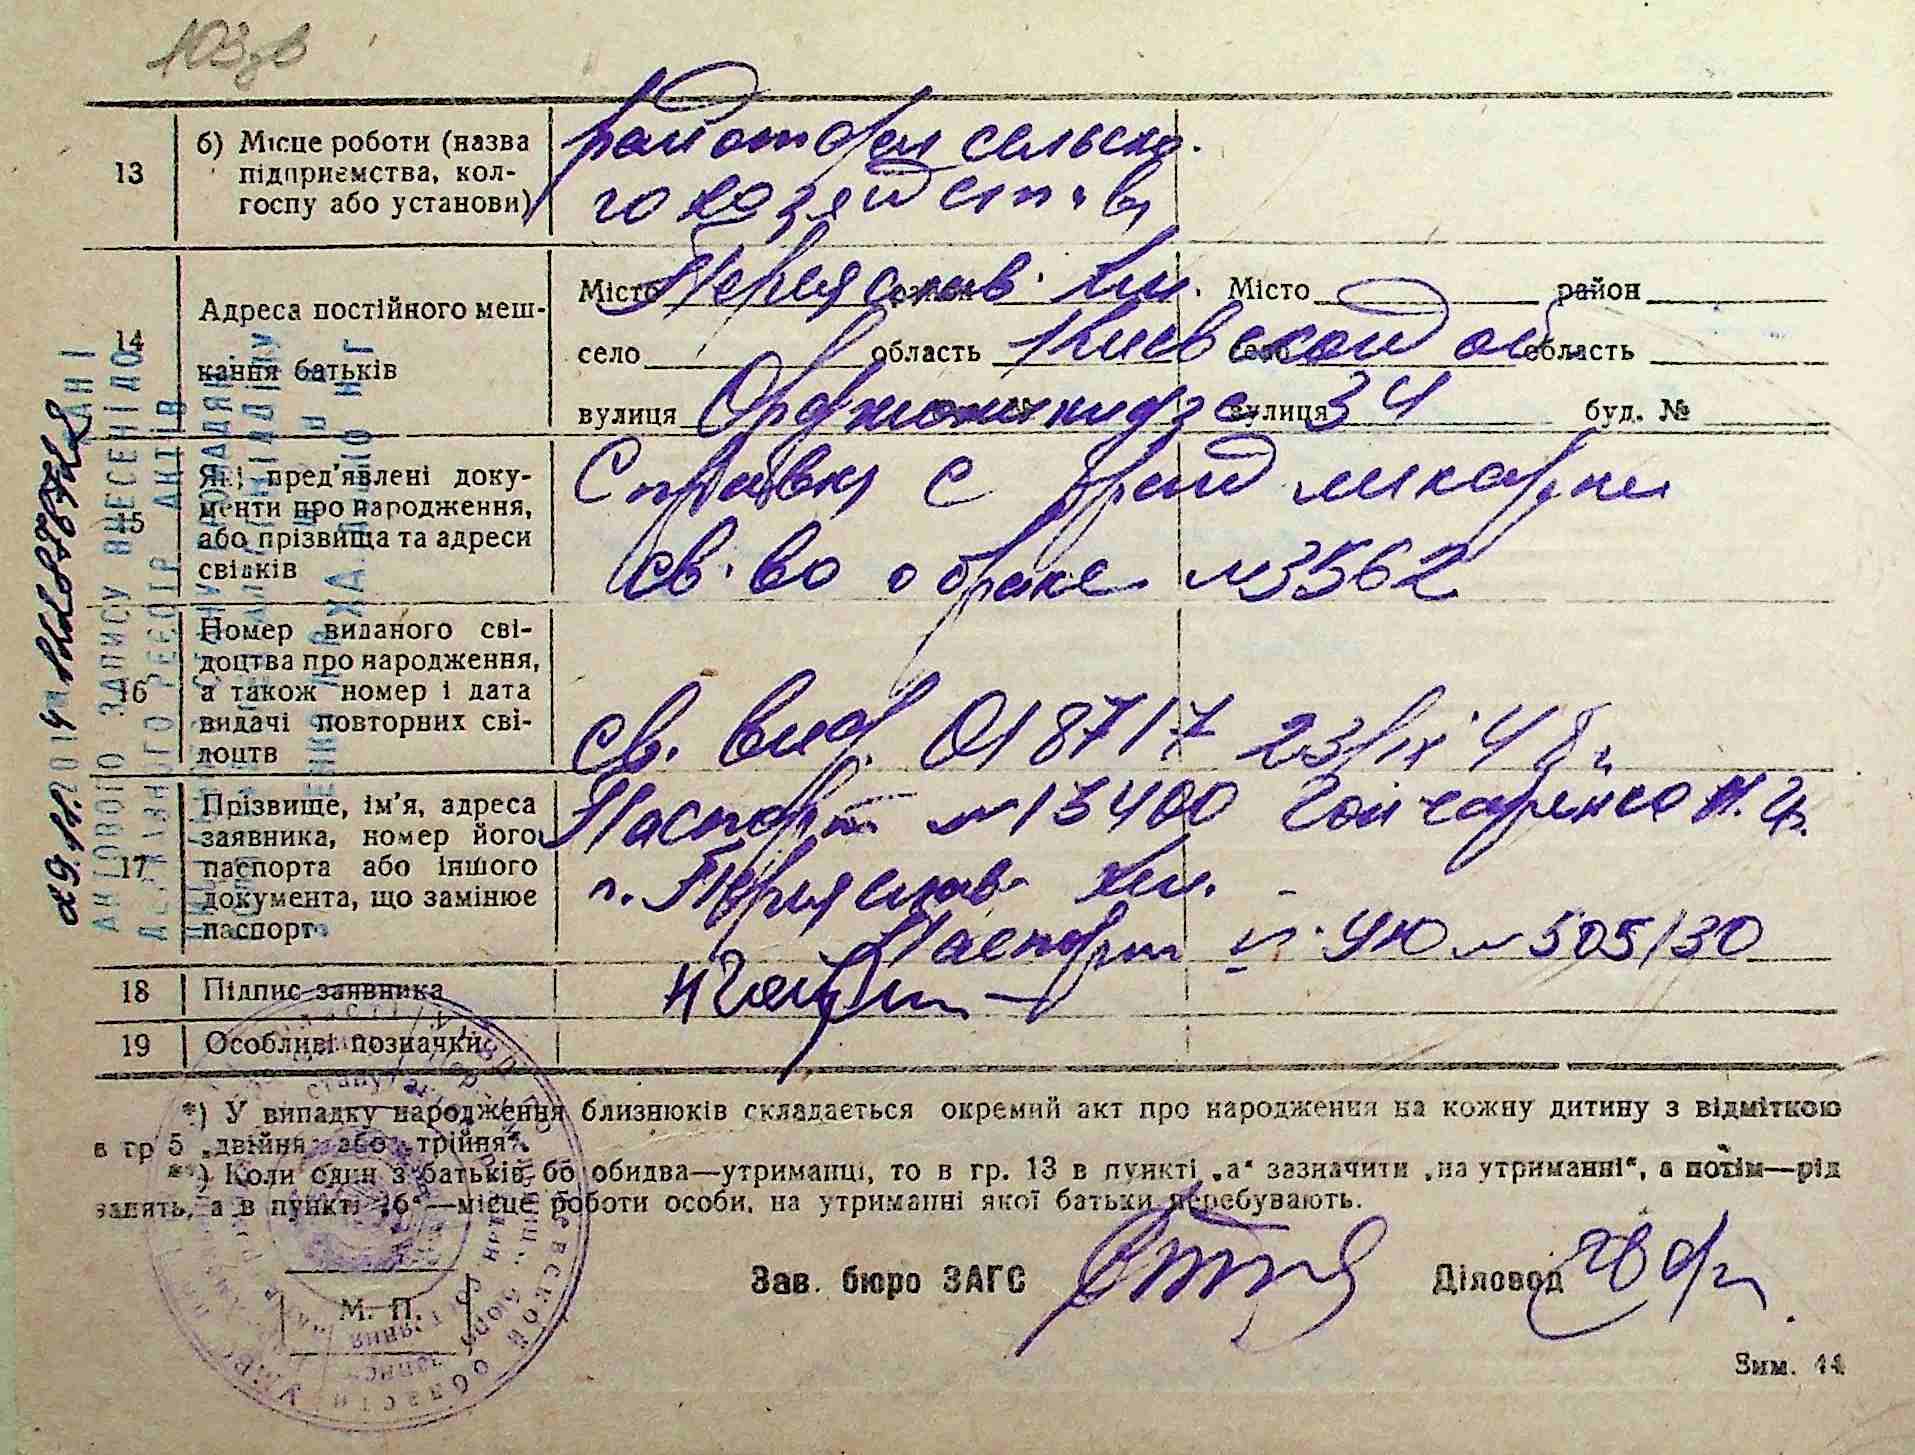 103зв
13
б) Місце роботи (назва
підприємства, кол-
госпу або установи)
райотдел сельско-
го хозяйства
14
Адреса постійного меш-
кання батьків
Місто Переяслав. Хм. Місто район
село область Киевской об область
вулиця Орджоникидзе 34 вулиця буд. №
15
Які пред'явлені доку-
менти про народження,
або прізвища та адреси
свідків
Справка с рай ликарни
св. во о браке №3562
16
Номер виданого сві-
доцтва про народження,
а також номер і дата
видачі повторних сві-
доцтв
св. выд. 018717 23/IX 48 г.
17
Прізвище, ім'я, адреса
заявника, номер його
паспорта або іншого
документа, що замінює
паспорт
Паспорт №13400 Гончаренко
г. Переяслав Хм.
Паспорт № 505130
18
Підпис заявника
19
Особливі позначки
*) У випадку народження близнюків складається окремий акт про народження на кожну дитину з відміткою
в гр 5 „двійня або трійня".
**) Коли один з батьків бо обидва—утриманці, то в гр. 13 в пункті „а" зазначити „на утриманні", а потім—рід
занять, а в пункті „б"—місце роботи особи, на утриманні якої батьки перебувають.
Зав. бюро ЗАГС Діловод
М. П.
Зим. 44
29.11.2014
АКТОВОГО ЗАПИСУ ВНЕСЕНІ ДО
ДЕРЖАВНОГО РЕЄСТР АКТІВ